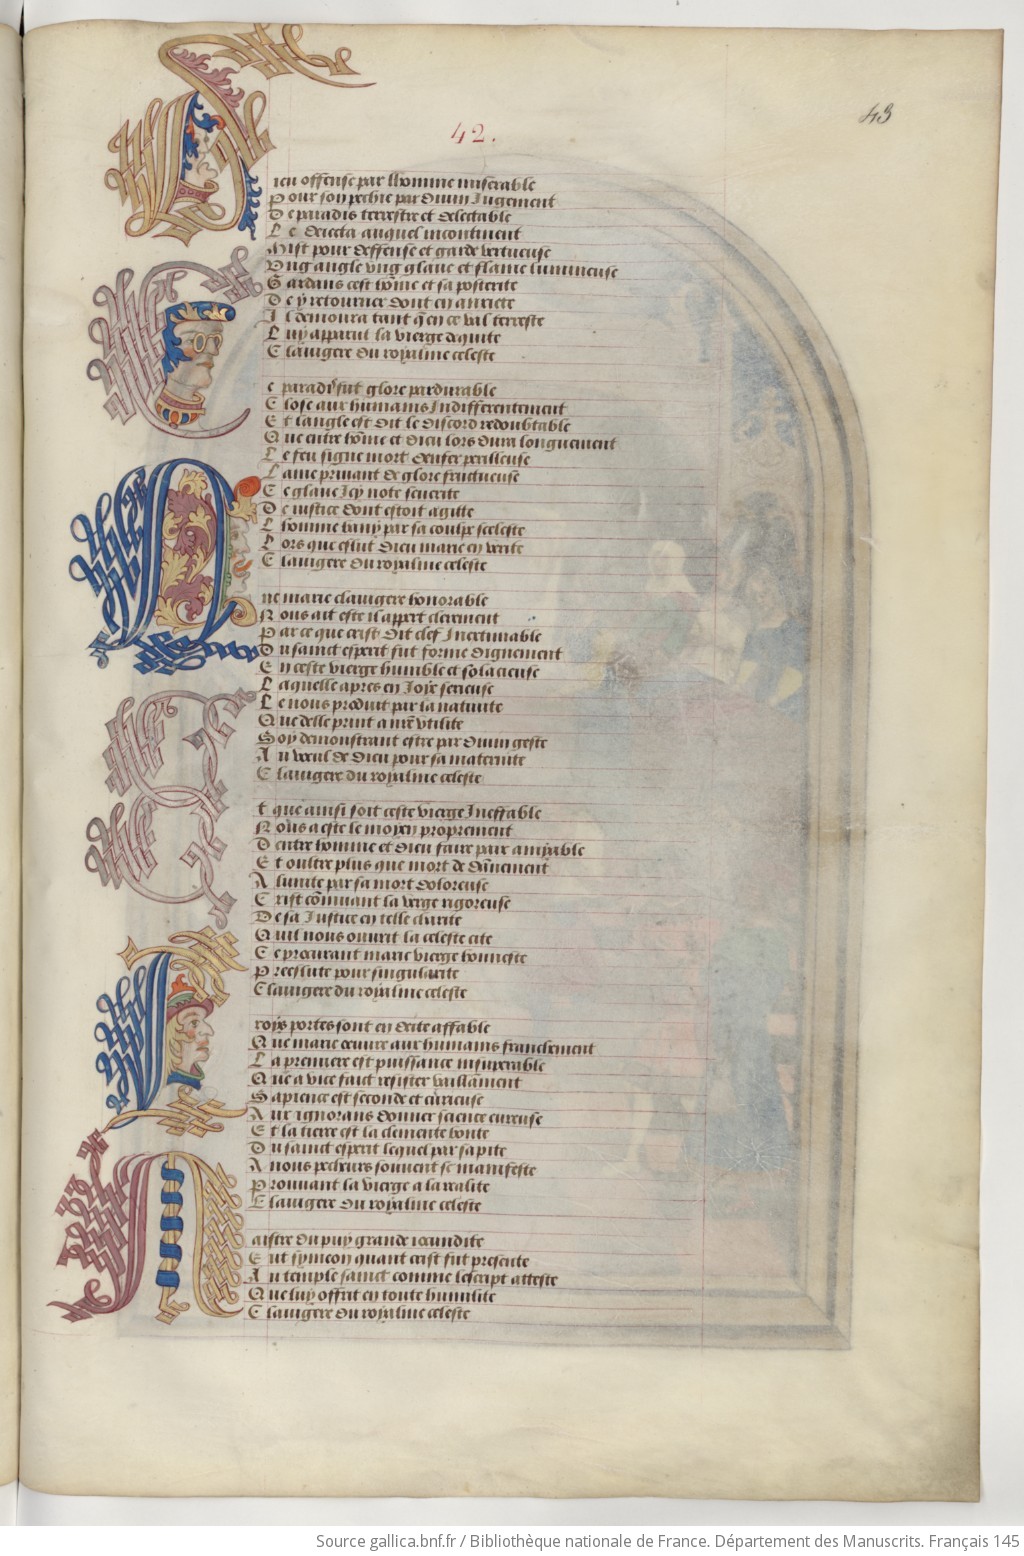 43
42.
Dieu offense par lhomme miserable
Pour son peche par divin Jugement
De paradis terrestre et delectable
Le deiecta auquel incontinent
Mist pour deffense et garde vertueuse
Ung angle ung glaue et flame lumineuse
Gardans cest home et sa posterite
De y retourner dont en anxiete
Il demoura tant q en ce val terrestre
Luy apparut la vierge dequite
Clauigere du royaulme celeste
Ce paradis fut glore pardurable
Close aux humains Indifferentement
Et langle est dit le discord redoubtable
Que entre home et dieu lors dura longuement
Le feu signe mort denfer perilleuse
Lame priuant de glore fructueuse
Ce glaue Icy note seuerite
De iustice dont estoit agitte
Lhomme bany par sa coulpe sceleste
Lors que eslut dieu marie en verite
Clauigere du royaulme celeste
Que marie clauigere honorable
Nous ait este il appert clerement
Par ce que crist dit clef Inextimable
Du sainct esperit fut forme dignement
En ceste vierge humble et solacieuse
Laquelle apres en Joye serieuse
Le nous produit par la natiuite
Que delle print a nre vtilite
Soy demonstrant estre par diuin geste
Au veul de dieu pour sa maternite
Clauigere du royaulme celeste
Et que ainsi soit ceste vierge Ineffable
Nous a este le moyen proprement
Dentre homme et dieu faire paix amyable
Et oultre plus que mort de danement
Alunite par sa mort doloreuse
Crist comuant la verge rigoreuse
De sa Justice en telle clarite
Quil nous ouurit la celeste cite
Ce procurant marie vierge honneste
Preeslute pour singularite
Clauigere du royaulme celeste
Troys portes sont en deite affable
Que marie œuure aux humains franchement
La premiere est puissance insuperable
Que a vice faict resister vaillament
Sapience est seconde et curieuse
Aux ignorans donner science eureuse
Et la tierce est la clemente bonte
Du sainct esperit lequel par sa pite
A nous pecheurs souuent se manifeste
Prouuant la vierge a la realite
Clauigere du royaulme celeste
Maistre du puy grande iocundite
Eut symeon quant crist fut presente
Au temple sainct comme lescript atteste
Que luy offrit en toute humilite
Clauigere du royaulme celeste
Source gallica.bnf.fr / Bibliothèque nationale de France. Département des Manuscrits. Français 145